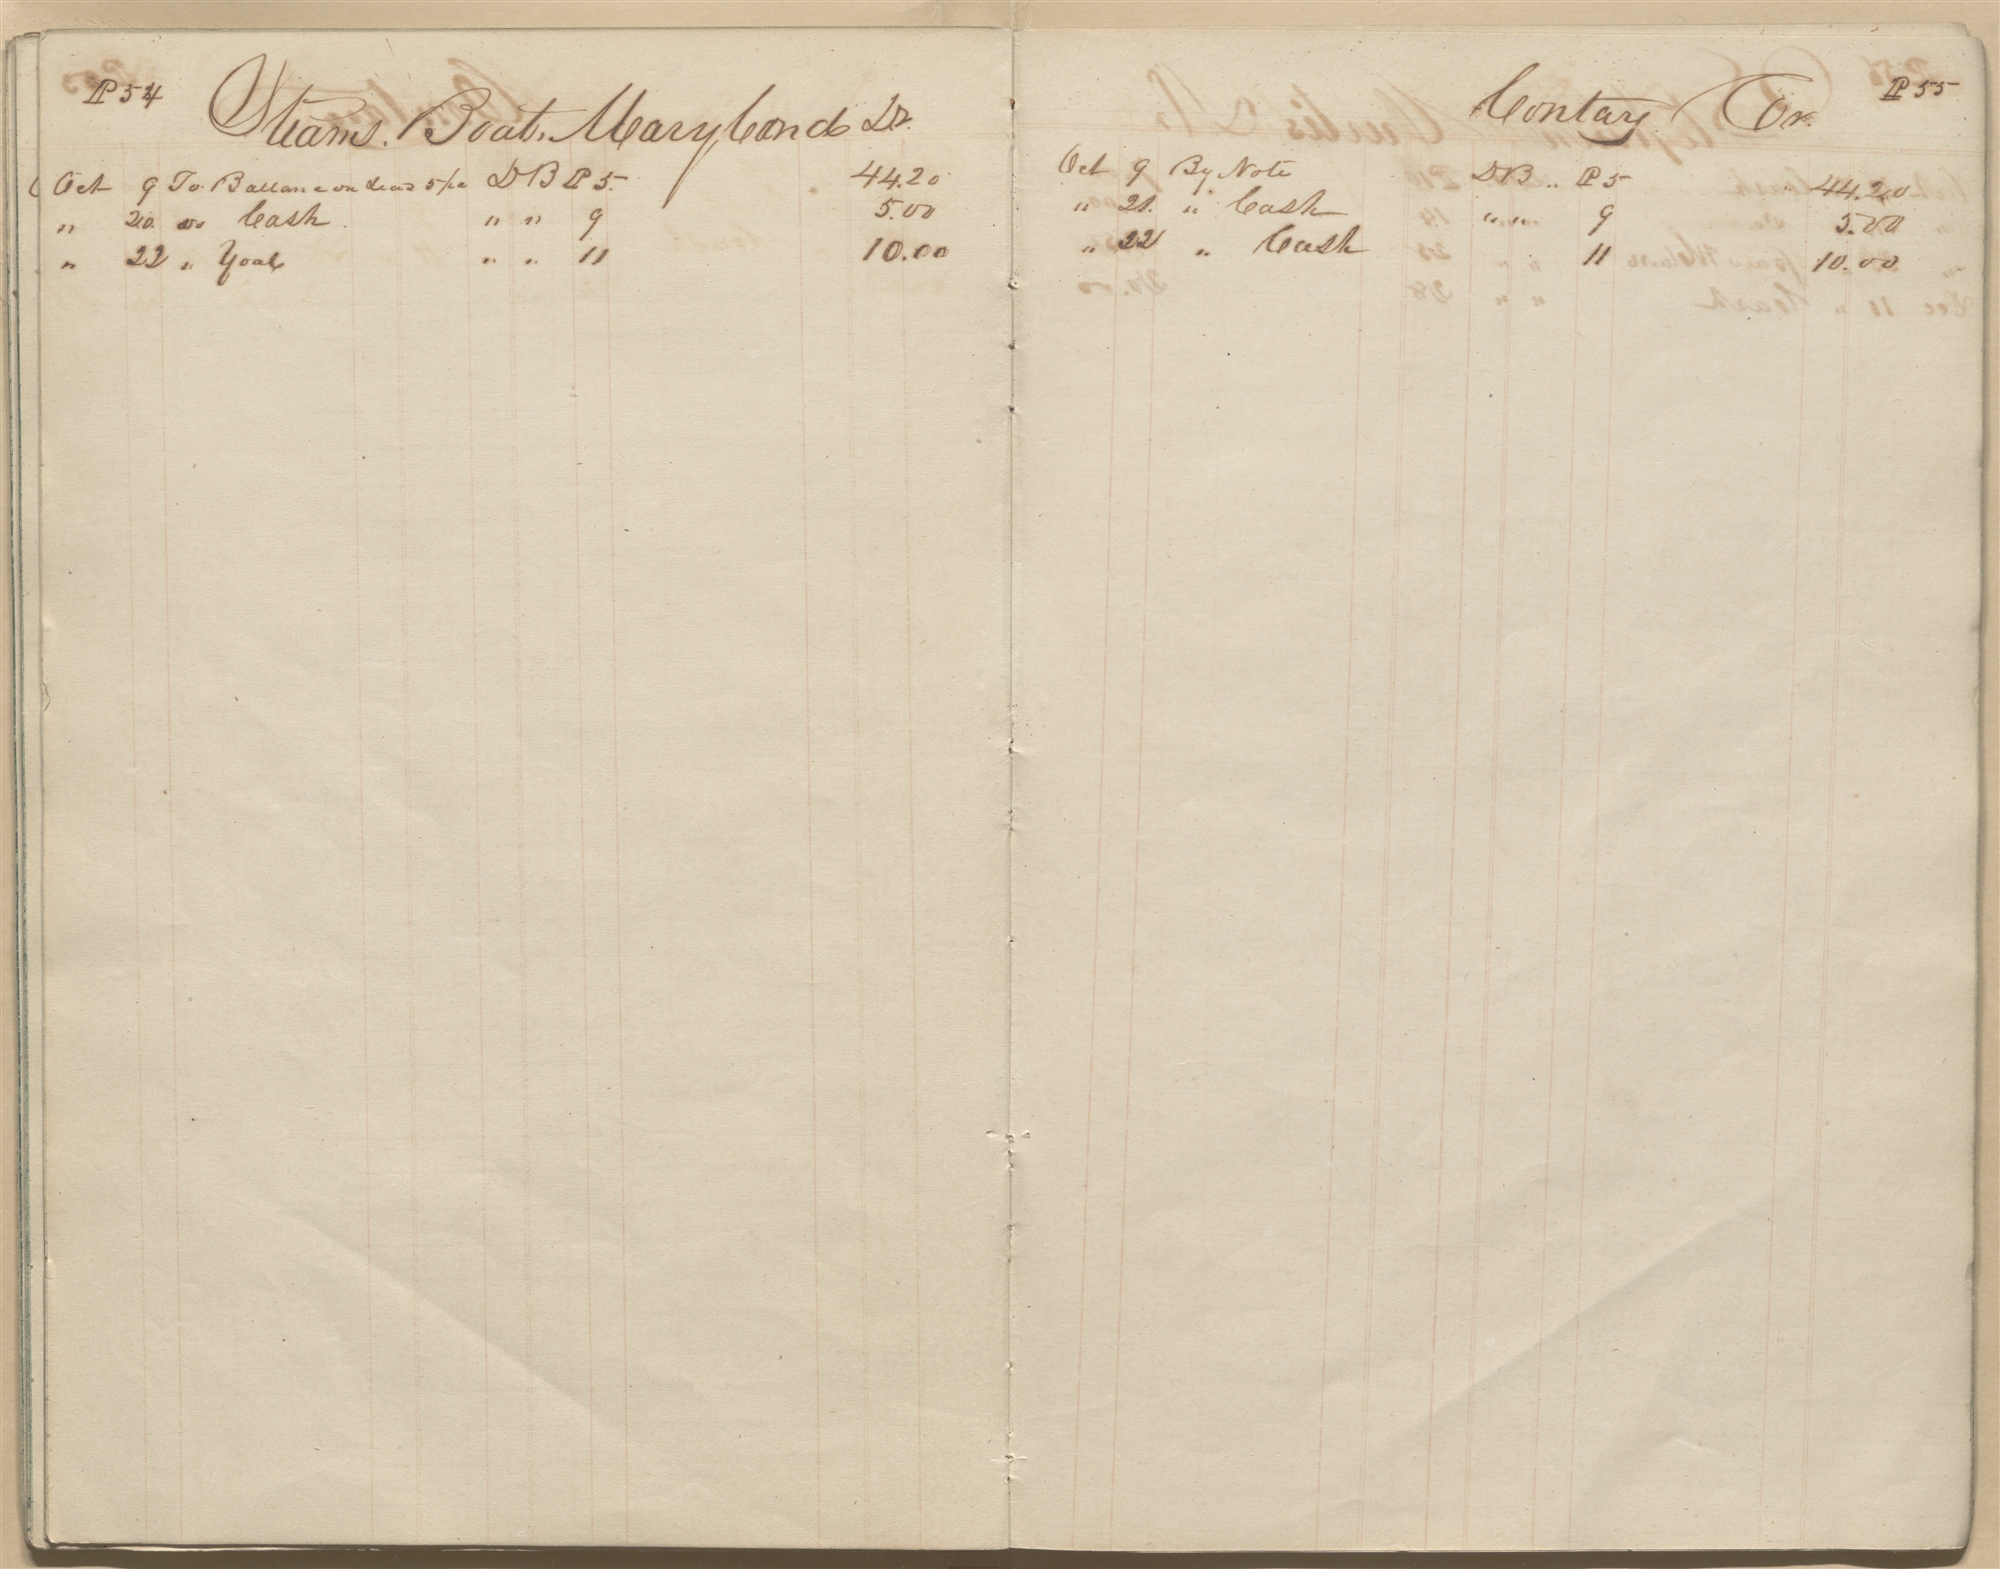 P 54
Steam. Boat. Mary Cond Dr.
Oct 9 To Ballance on Lead 5/00 DB P 5. 44.20
" 20 do Cash " " 9 5.00
" 22 " Yoal " " 11 10.00
P 55
Contary Cr.
Oct 9 By Note DB " P 5 44.20
" 21. " Cash " " 9 5.00
" 22 " Cash 11 10.00